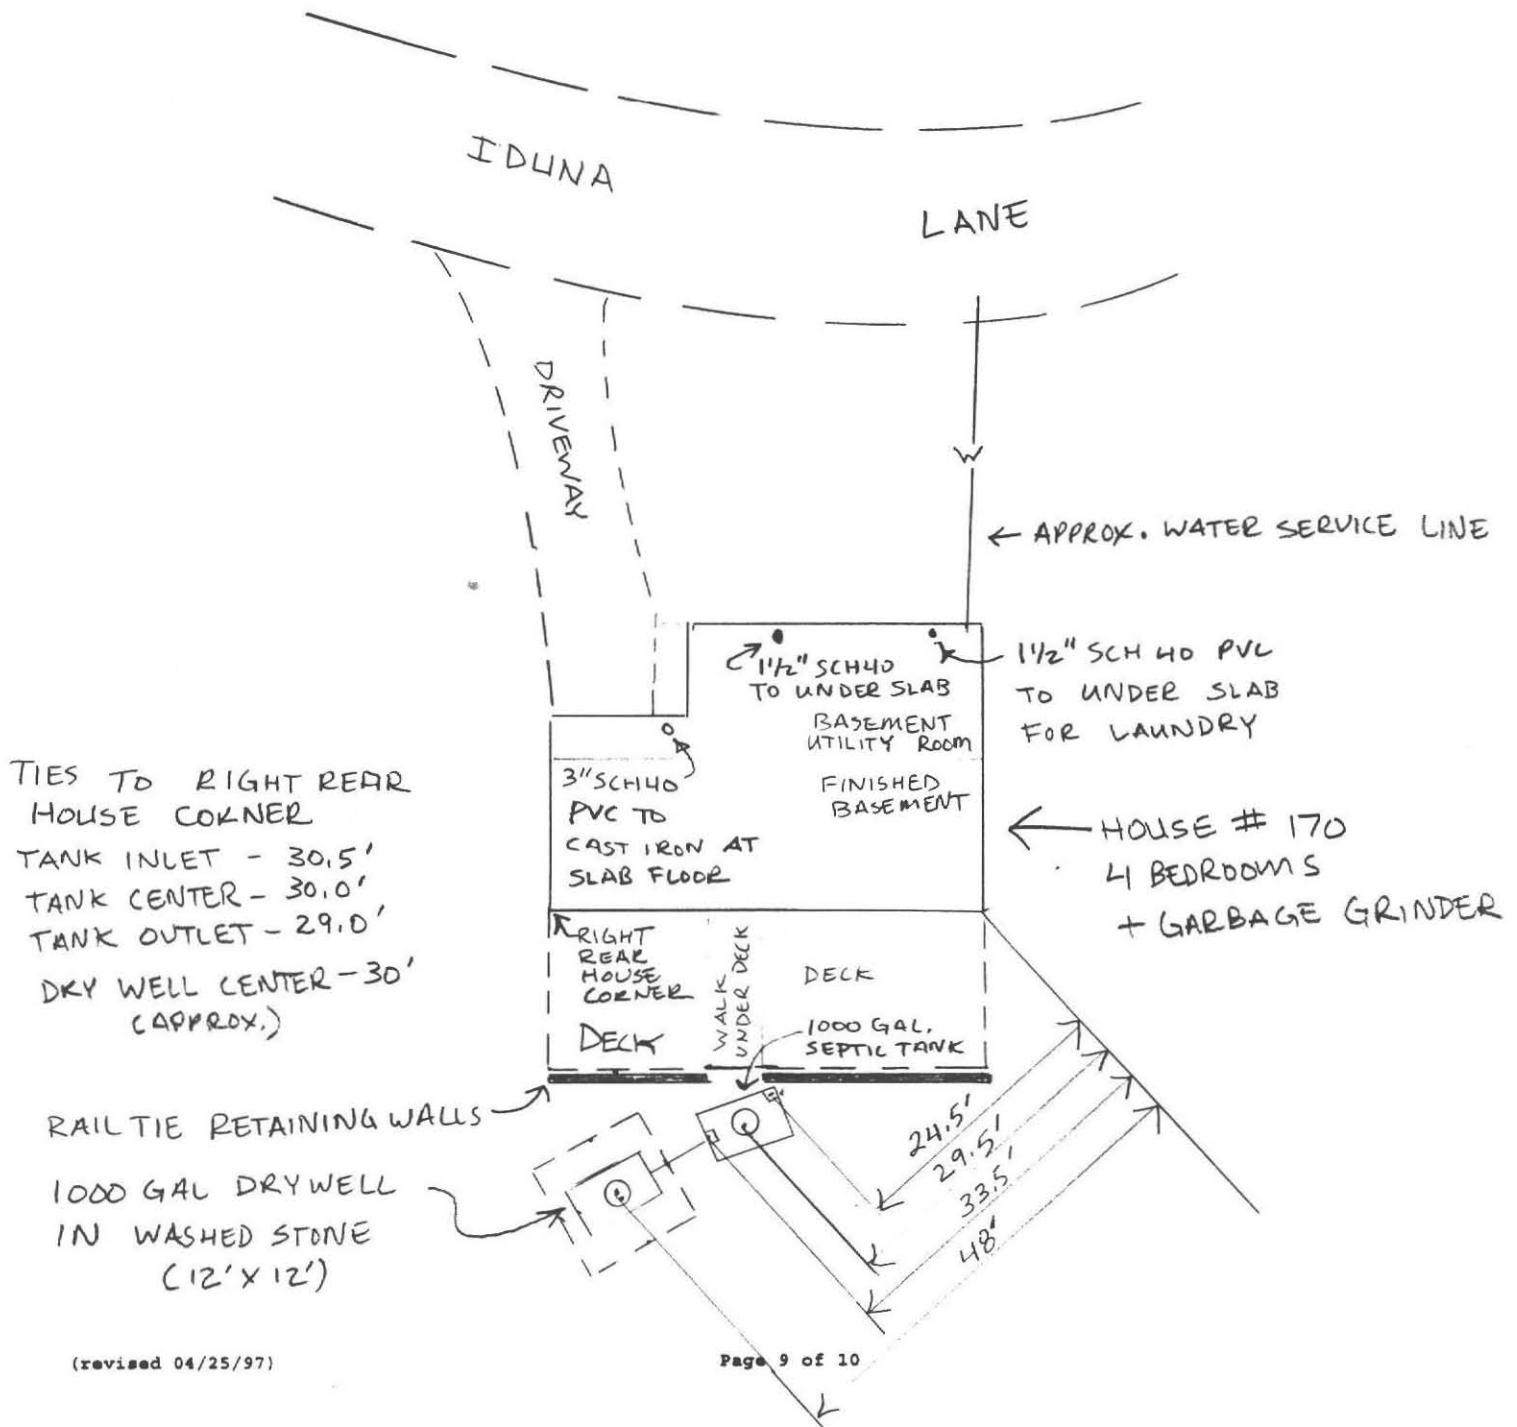 IDUNA
LANE
DRIVEWAY
W
← APPROX. WATER SERVICE LINE
1½" SCH40
TO UNDER SLAB
1½" SCH 40 PVC
TO UNDER SLAB
FOR LAUNDRY
BASEMENT
UTILITY ROOM
FINISHED
BASEMENT
3" SCH40
PVC TO
CAST IRON AT
SLAB FLOOR
TIES TO RIGHT REAR
HOUSE CORNER
TANK INLET - 30.5'
TANK CENTER - 30.0'
TANK OUTLET - 29.0'
DRY WELL CENTER - 30'
(APPROX.)
HOUSE # 170
4 BEDROOMS
+ GARBAGE GRINDER
RIGHT
REAR
HOUSE
CORNER
DECK
WALK
UNDER DECK
DECK
1000 GAL.
SEPTIC TANK
RAIL TIE RETAINING WALLS
1000 GAL DRYWELL
IN WASHED STONE
(12' X 12')
24.5'
29.5'
33.5'
48'
(revised 04/25/97)
Page 9 of 10